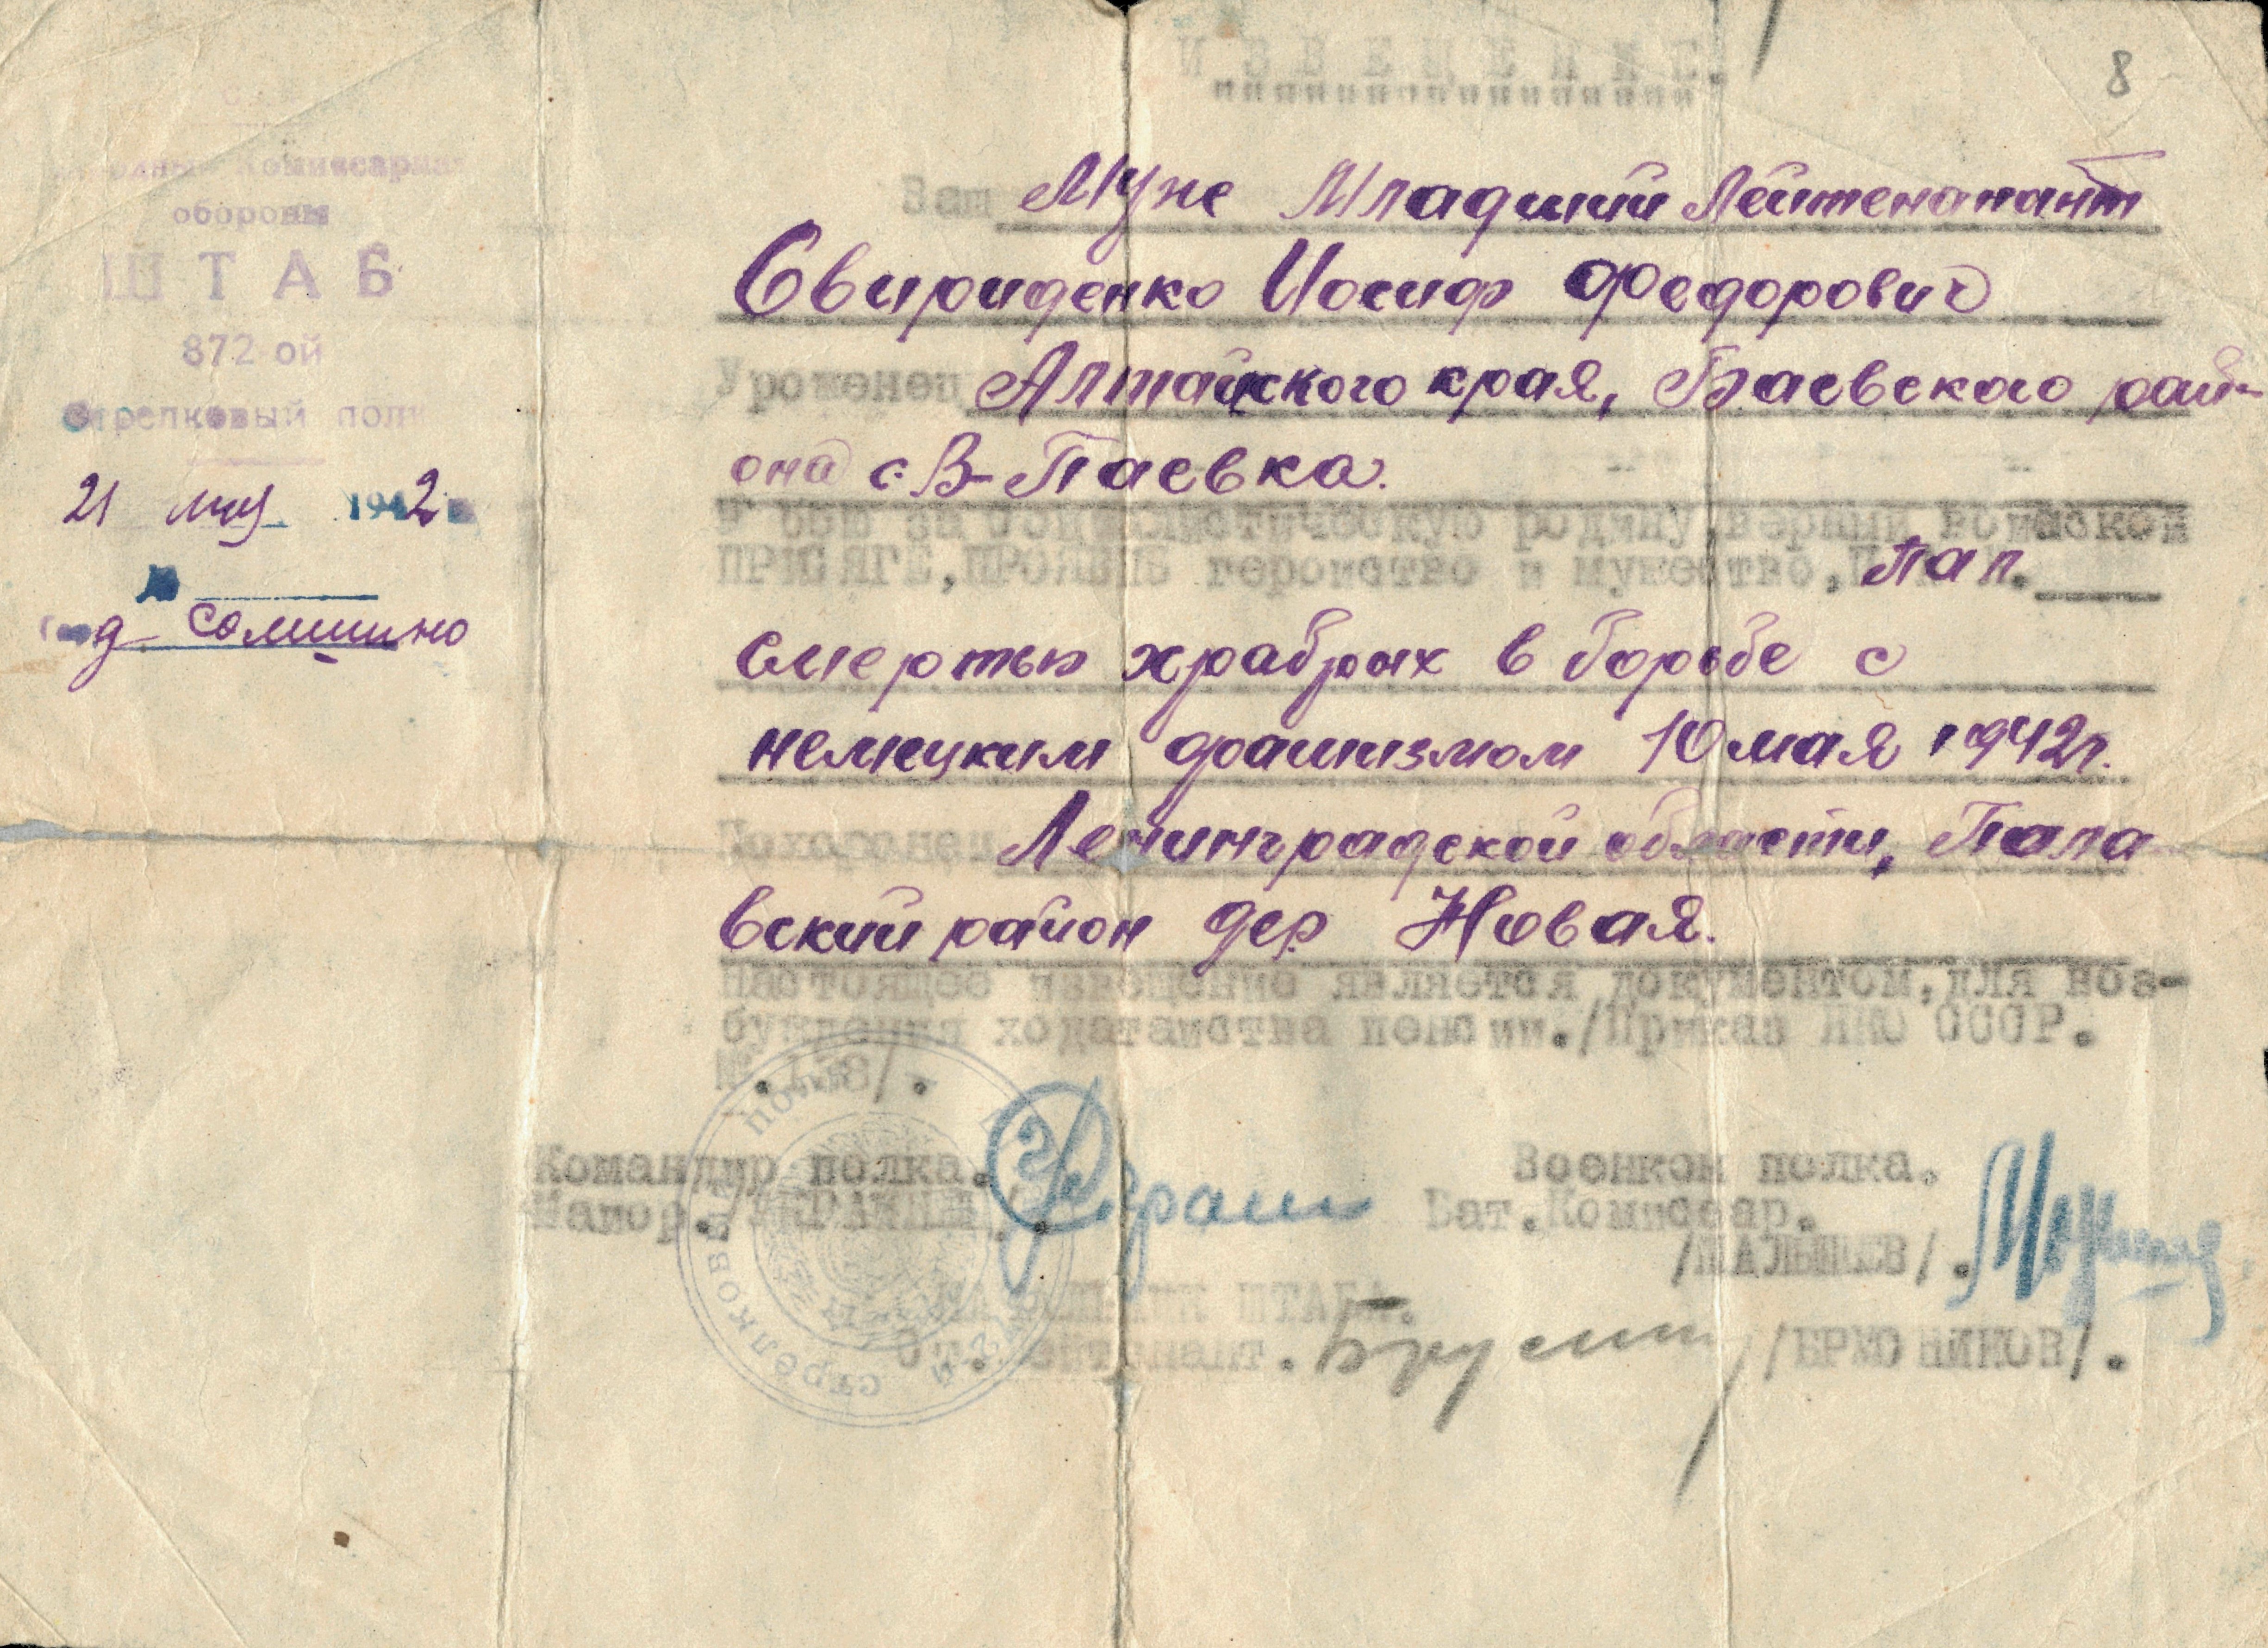 ИЗВЕЩЕНИЕ.
8
Народный Комиссариат
обороны
ШТАБ
872 ой
Стрелковый полк
21 мая 1942
д Сомшино
Ваш Муж Младший Лейтенапант
Свириденко Иосиф Федорович
Уроженец Алтайского края, Баевского рай-
она с. В-Паевка.
В бою за социалистическую родину, верный воинской
ПРИСЯГЕ, ПРОЯВИВ геройство и мужество, пал.
смертью храбрых в борьбе с
немецким фашизмом 10 мая 1942 г.
Похоронен Ленинградской области, Пола
вский район дер Новая.
Настоящее извещение является документом, для воз-
буждения ходатайства пенсии./Приказ НКО СССР.
Командир полка.
Майор.
Военком полка.
Бат. Комиссар.
/МАЛЫШЕВ/.
НАЧАЛЬНИК ШТАБА.
Ст. Лейтенант.
стрелковый полк